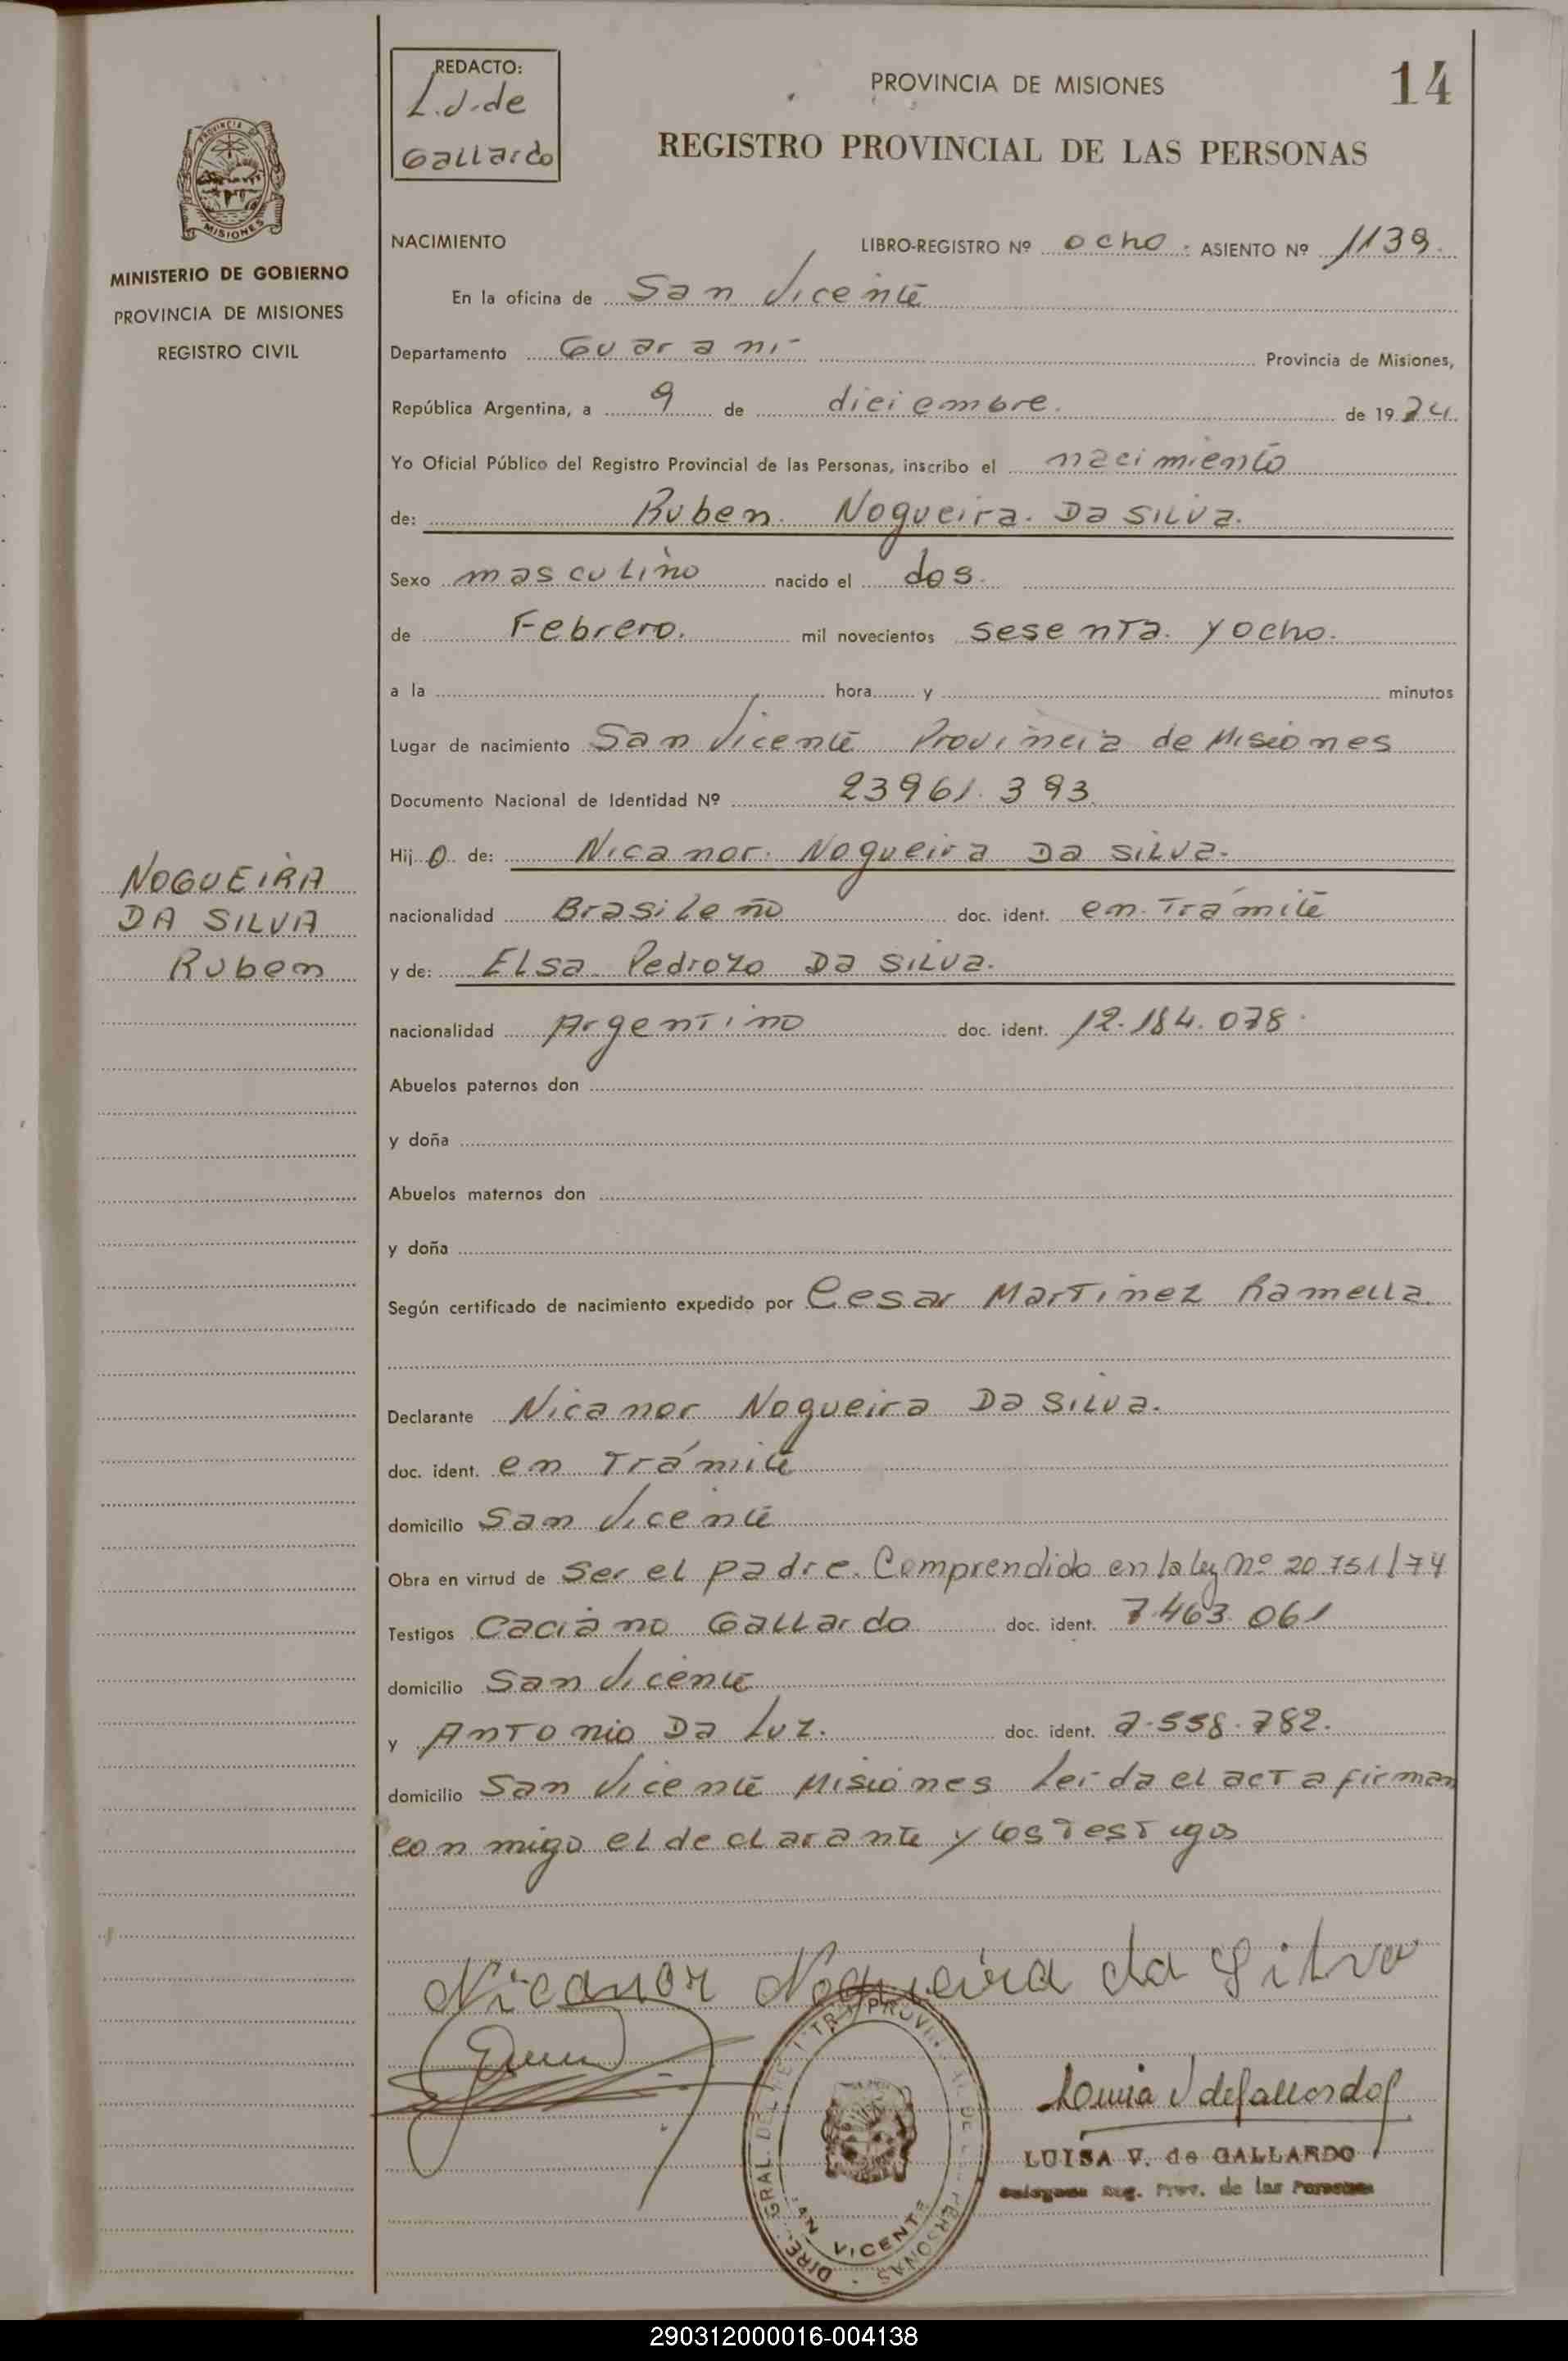 REDACTO:
L.V. de
Gallardo
PROVINCIA DE MISIONES
14
REGISTRO PROVINCIAL DE LAS PERSONAS
MISIONES
MINISTERIO DE GOBIERNO
PROVINCIA DE MISIONES
REGISTRO CIVIL
NACIMIENTO LIBRO-REGISTRO Nº ocho . ASIENTO Nº 1139.
En la oficina de San Vicente
Departamento Guaraní Provincia de Misiones,
República Argentina, a 9 de diciembre. de 1974.
Yo Oficial Público del Registro Provincial de las Personas, inscribo el nacimiento
de: Ruben. Nogueira. Da Silva.
Sexo masculino nacido el dos.
de Febrero. mil novecientos sesenta. y ocho.
a la hora y minutos
Lugar de nacimiento San Vicente Provincia de Misiones
Documento Nacional de Identidad Nº 23961.393.
NOGUEIRA
DA SILVA
Ruben
Hijo de: Nicanor. Nogueira Da Silva.
nacionalidad Brasileño doc. ident. en Trámite
y de: Elsa Pedrozo Da Silva.
nacionalidad Argentino doc. ident. 12.184.078.
Abuelos paternos don
y doña
Abuelos maternos don
y doña
Según certificado de nacimiento expedido por Cesar Martinez Ramella.
Declarante Nicanor Nogueira Da Silva.
doc. ident. en Trámite
domicilio San Vicente
Obra en virtud de Ser el padre. Comprendido en la ley Nº 20.751/74
Testigos Caciano Gallardo doc. ident. 7.463.061
domicilio San Vicente
y Antonio Da Luz. doc. ident. 7.558.782.
domicilio San Vicente Misiones Leída el acta firman
conmigo el declarante y los testigos
Nicanor Nogueira da Silva
LUISA V. de GALLARDO
Reg. Prov. de las Personas
SAN VICENTE
290312000016-004138